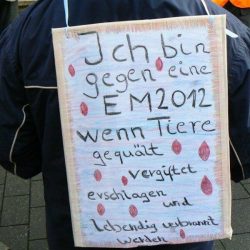 Ich bin
gegen eine
EM2012
wenn Tiere
gequält
vergiftet
erschlagen und
lebendig verbrannt
werden